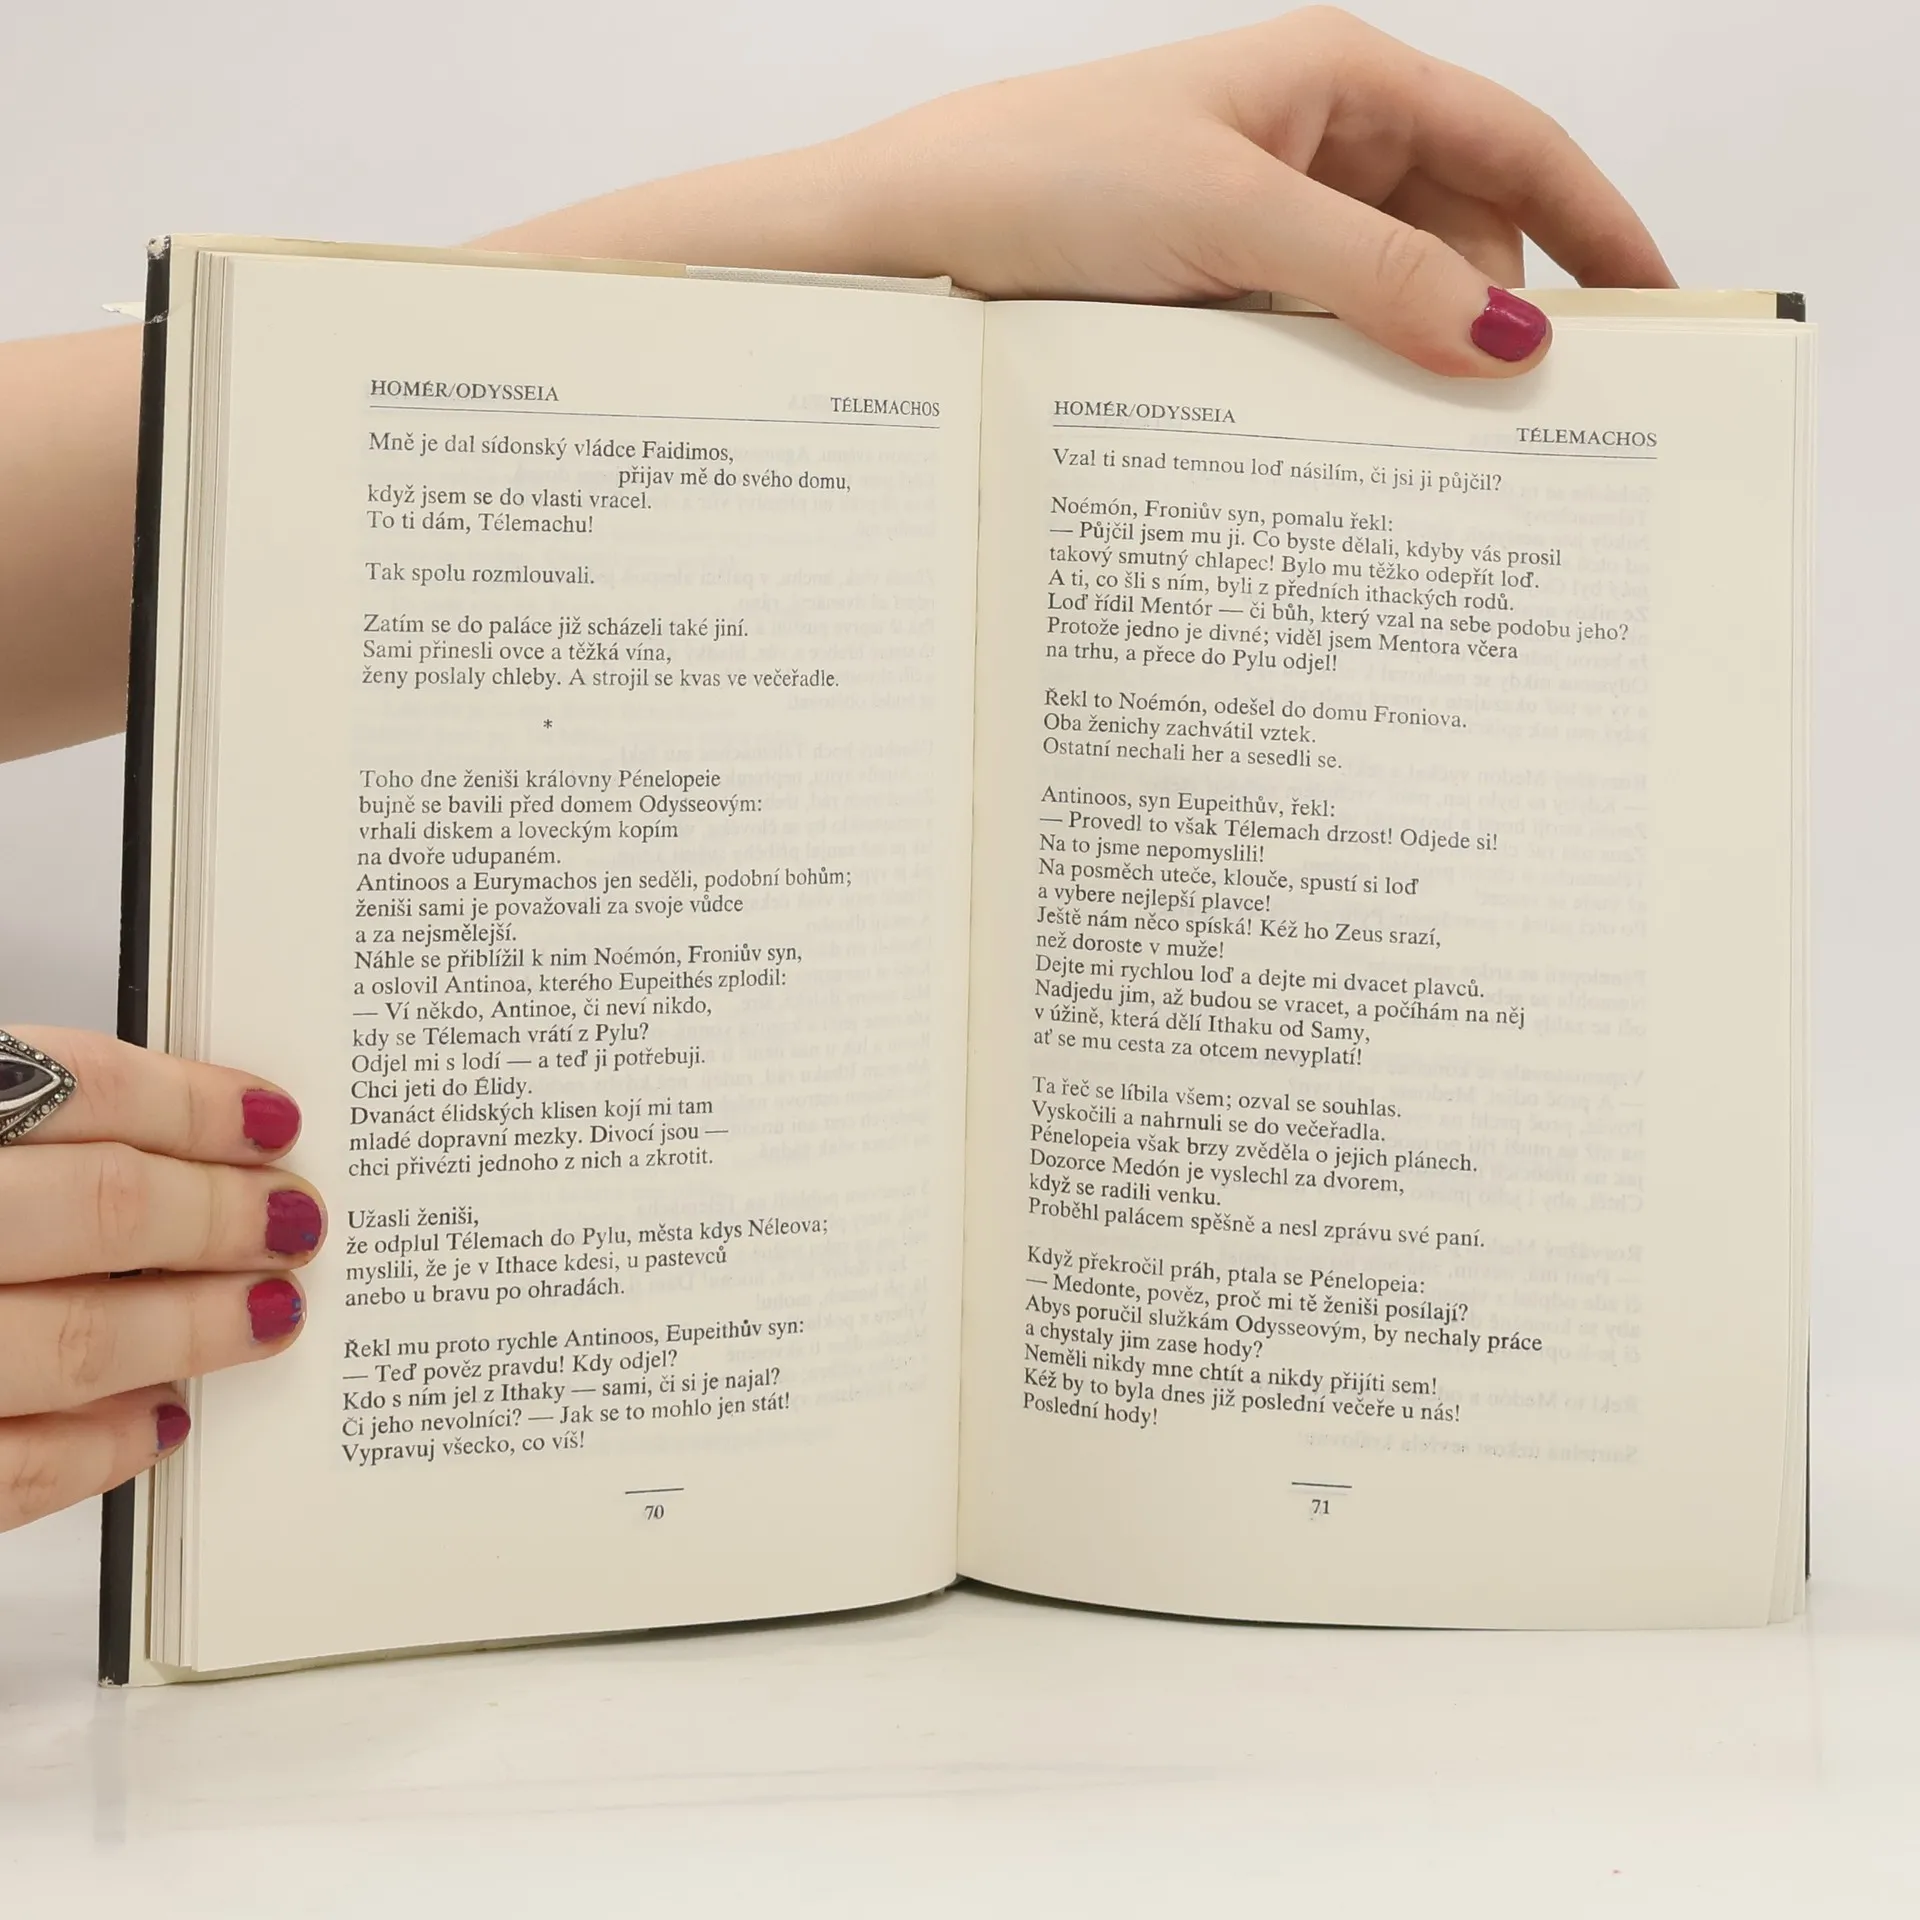 HOMÉR/ODYSSEIA
TÉLEMACHOS
Mně je dal sídonský vládce Faidimos,
přijav mě do svého domu,
když jsem se do vlasti vracel.
To ti dám, Télemachu!
Tak spolu rozmlouvali.
Zatím se do paláce již scházeli také jiní.
Sami přinesli ovce a těžká vína,
ženy poslaly chleby. A strojil se kvas ve večeřadle.
*
Toho dne ženiši královny Pénelopeie
bujně se bavili před domem Odysseovým:
vrhali diskem a loveckým kopím
na dvoře udupaném.
Antinoos a Eurymachos jen seděli, podobní bohům;
ženiši sami je považovali za svoje vůdce
a za nejsmělejší.
Náhle se přiblížil k nim Noémón, Froniův syn,
a oslovil Antinoa, kterého Eupeithés zplodil:
— Ví někdo, Antinoe, či neví nikdo,
kdy se Télemach vrátí z Pylu?
Odjel mi s lodí — a teď ji potřebuji.
Chci jeti do Élidy.
Dvanáct élidských klisen kojí mi tam
mladé dopravní mezky. Divocí jsou —
chci přivézti jednoho z nich a zkrotit.
Užasli ženiši,
že odplul Télemach do Pylu, města kdys Néleova;
myslili, že je v Ithace kdesi, u pastevců
anebo u bravu po ohradách.
Řekl mu proto rychle Antinoos, Eupeithův syn:
— Teď pověz pravdu! Kdy odjel?
Kdo s ním jel z Ithaky — sami, či si je najal?
Či jeho nevolníci? — Jak se to mohlo jen stát!
Vypravuj všecko, co víš!
70
HOMÉR/ODYSSEIA
TÉLEMACHOS
Vzal ti snad temnou loď násilím, či jsi ji půjčil?
Noémón, Froniův syn, pomalu řekl:
— Půjčil jsem mu ji. Co byste dělali, kdyby vás prosil
takový smutný chlapec! Bylo mu těžko odepřít loď.
A ti, co šli s ním, byli z předních ithackých rodů.
Loď řídil Mentór — či bůh, který vzal na sebe podobu jeho?
Protože jedno je divné; viděl jsem Mentora včera
na trhu, a přece do Pylu odjel!
Řekl to Noémón, odešel do domu Froniova.
Oba ženichy zachvátil vztek.
Ostatní nechali her a sesedli se.
Antinoos, syn Eupeithův, řekl:
— Provedl to však Télemach drzost! Odjede si!
Na to jsme nepomyslili!
Na posměch uteče, klouče, spustí si loď
a vybere nejlepší plavce!
Ještě nám něco spíská! Kéž ho Zeus srazí,
než doroste v muže!
Dejte mi rychlou loď a dejte mi dvacet plavců.
Nadjedu jim, až budou se vracet, a počíhám na něj
v úžině, která dělí Ithaku od Samy,
ať se mu cesta za otcem nevyplatí!
Ta řeč se líbila všem; ozval se souhlas.
Vyskočili a nahrnuli se do večeřadla.
Pénelopeia však brzy zvěděla o jejich plánech.
Dozorce Medón je vyslechl za dvorem,
když se radili venku.
Proběhl palácem spěšně a nesl zprávu své paní.
Když překročil práh, ptala se Pénelopeia:
— Medonte, pověz, proč mi tě ženiši posílají?
Abys poručil služkám Odysseovým, by nechaly práce
a chystaly jim zase hody?
Neměli nikdy mne chtít a nikdy přijíti sem!
Kéž by to byla dnes již poslední večeře u nás!
Poslední hody!
71